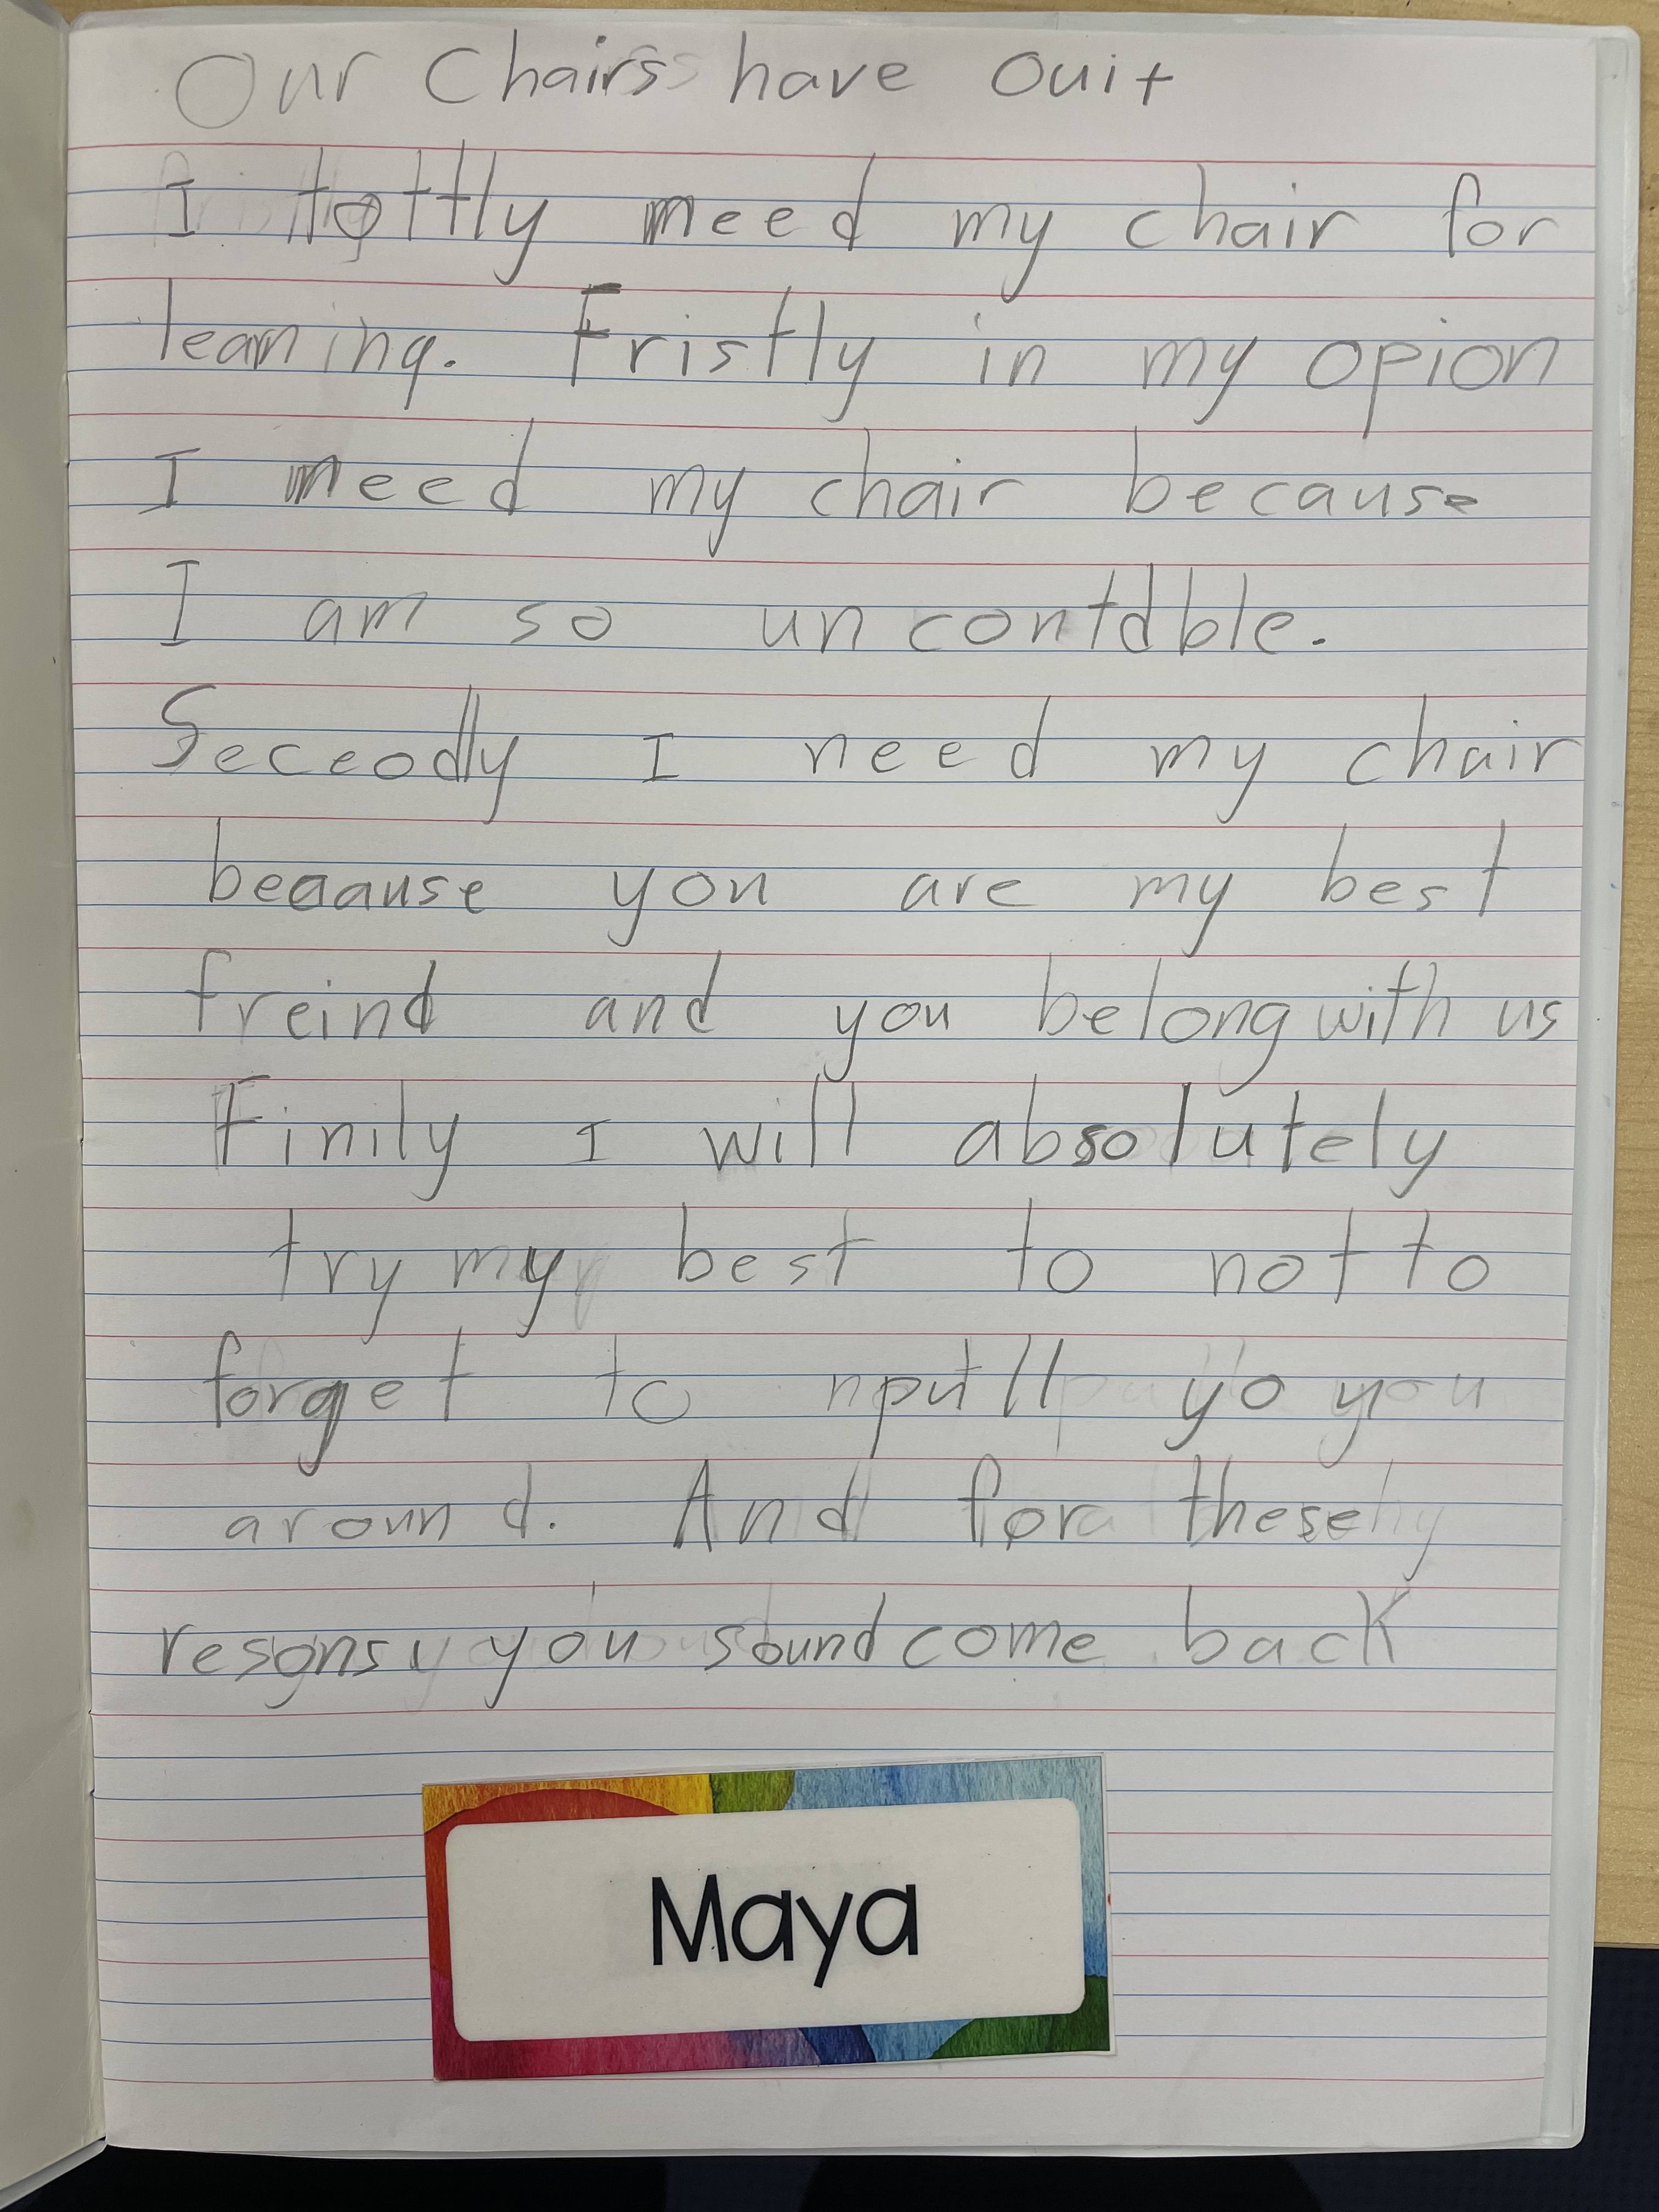 Our Chairs have Ouit
I tottly meed my chair for
learning. Fristly in my opion
I meed my chair because
I am so un contdble.
Seceodly I need my chair
beaause you are my best
freind and you belong with us
Finily I will absolutely
try my best to not to
forget to you
around. And for these
resgns you sound come back
Maya